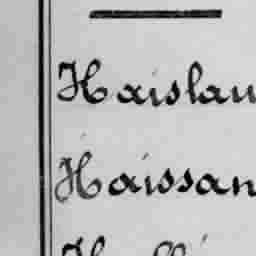 Haislau
Haissan